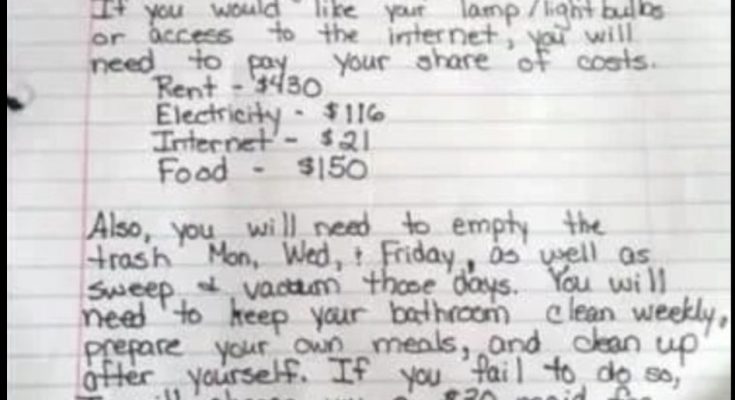 If you would like your lamp/light bulbs
or access to the internet, you will
need to pay your share of costs.
Rent - $430
Electricity - $116
Internet - $21
Food - $150
Also, you will need to empty the
trash Mon, Wed, + Friday, as well as
sweep & vacuum those days. You will
need to keep your bathroom clean weekly,
prepare your own meals, and clean up
after yourself. If you fail to do so,
I will charge you a $30 maid fee